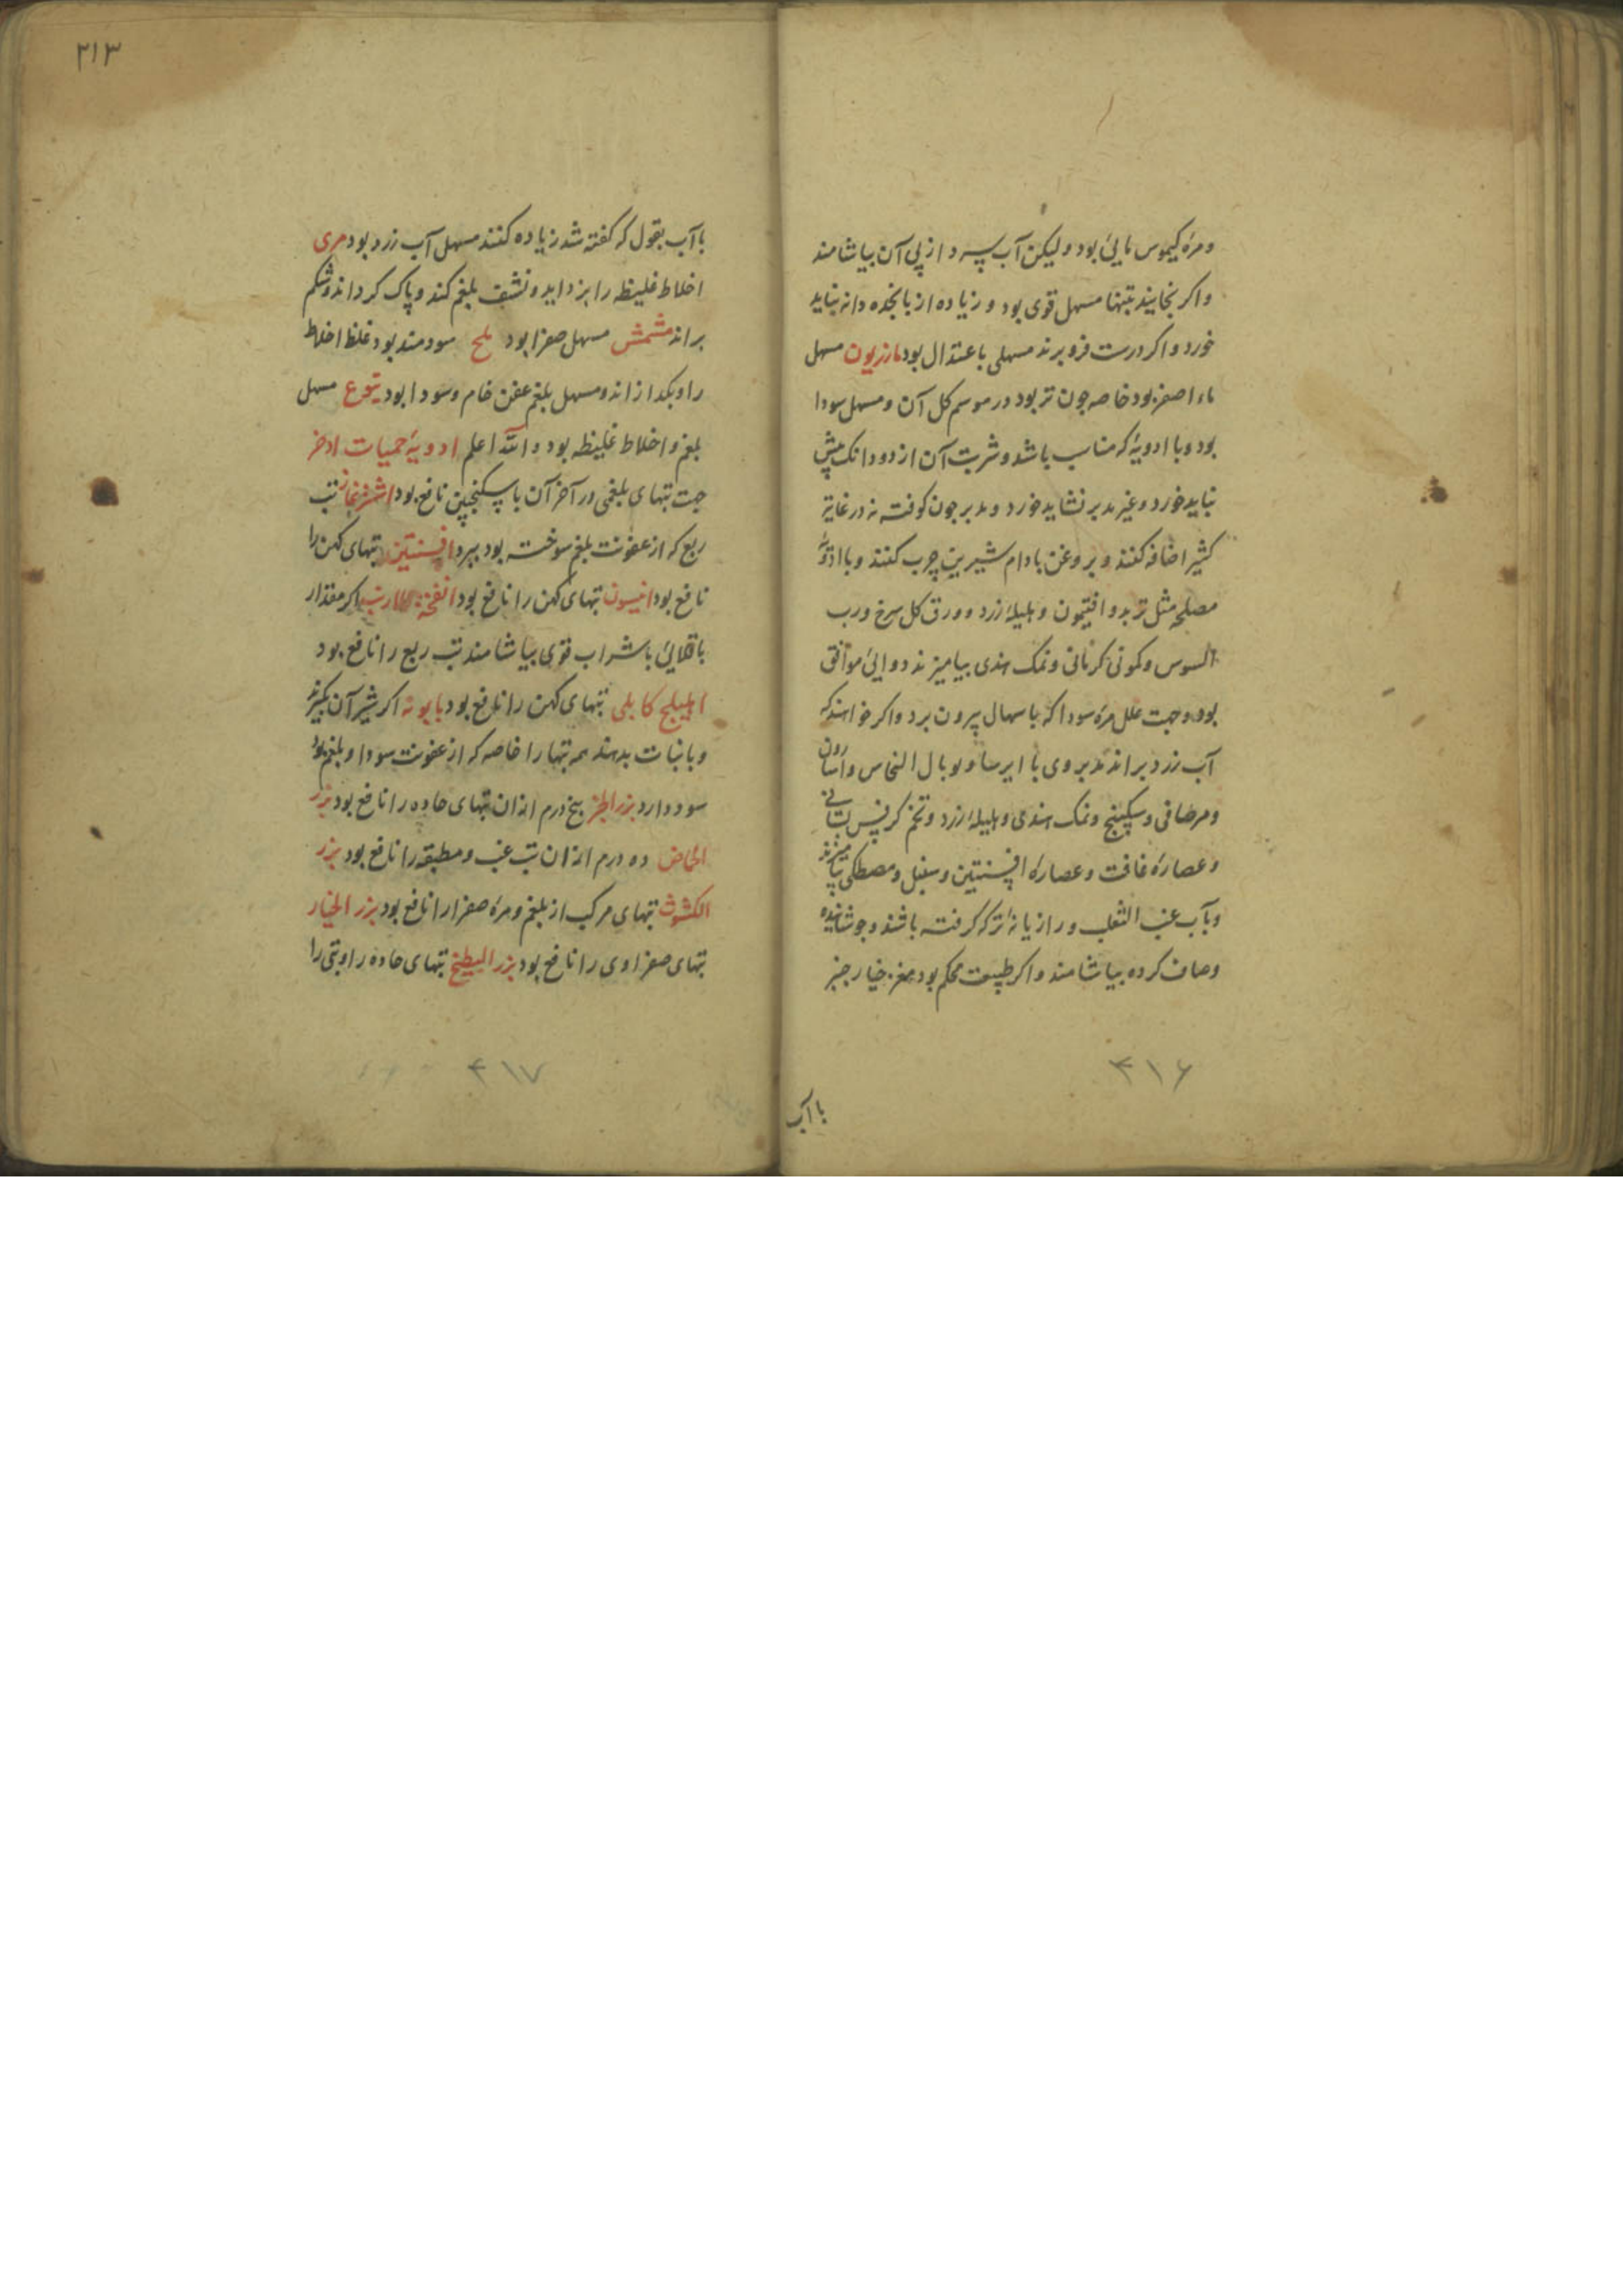 ومرهٔ کیموس مایی بود ولیکن آب سرد از پی آن بیاشامند
واکر بخایند تنها مسهل قوی بود و زیاده از پانجده دانه نباید
خورد واکر درست فرو برند مسهلی باعتدال بود مازریون مسهل
ماء اصفر بود خاصه چون تر بود در موسم کل آن ومسهل سودا
بود وبا ادویهٔ که مناسب باشد وشربت آن از دو دانک بیش
نباید خورد وغیر مدبر نشاید خورد و مدبر چون کوفته نه در غایة
کثیرا اضافه کنند و بروغن بادام شیرین چرب کنند وبا ادویهٔ
مصلحه مثل تربد وافتیمون و هلیلهٔ زرد و ورق کل سرخ ورب
السوس وکمونی کرمانی ونمک هندی بیامیزند دوایی موافق
بود وجهت علل مرهٔ سودا که باسهال بیرون برد واکر خواهند که
آب زرد براند تدبر وی با ایرسا وتوبال النحاس واسارون
ومرصافی وسکبینج ونمک هندی وهلیلهٔ زرد وتخم کرفس بستانی
وعصارهٔ غافت وعصارهٔ افسنتین وسنبل ومصطکی بیامیزند
وبآب عنب الثعلب ورازیانهٔ تر که کرفته باشند وجوشانیده
وصاف کرده بیاشامند واکر طبیعت محکم بود بمغز خیارچنبر
۳۱۶
باآب
۲۱۳
باآب بقول که کفته شد زیاده کنند مسهل آب زرد بود مری
اخلاط غلیظ را بزداید ونشف بلغم کند وپاک کرداند وشکم
براند مشمش مسهل صفرا بود ملح سودمند بود غلظ اخلاط
را وبکدازاند ومسهل بلغم عفن خام وسودا بود یتوع مسهل
بلغم واخلاط غلیظه بود والله اعلم ادویهٔ حمیات اذخر
جهت تبهای بلغمی در آخر آن با سکنجبین نافع بود اشترغاز تب
ربع که از عفونت بلغم سوخته بود ببرد افسنتین تبهای کهن را
نافع بود انیسون تبهای کهن را نافع بود انفحة الارنب اکر مقدار
باقلایی باشراب قوی بیاشامند تب ربع را نافع بود
اهلیلج کابلی تبهای کهن را نافع بود بابونه اکر شیر آن بکیرند
وبا نبات بدهند همه تبها را خاصه که از عفونت سودا و بلغم بود
سود دارد بزر الجزر پنج درم ازان تبهای حاده را نافع بود بزر
الحماض ده درم ازان تب غب ومطبقه را نافع بود بزر
الکشوث تبهای مرکب از بلغم ومرهٔ صفرا را نافع بود بزر الخیار
تبهای صفراوی را نافع بود بزر البطیخ تبهای حاده را وتبی را
۴۱۷